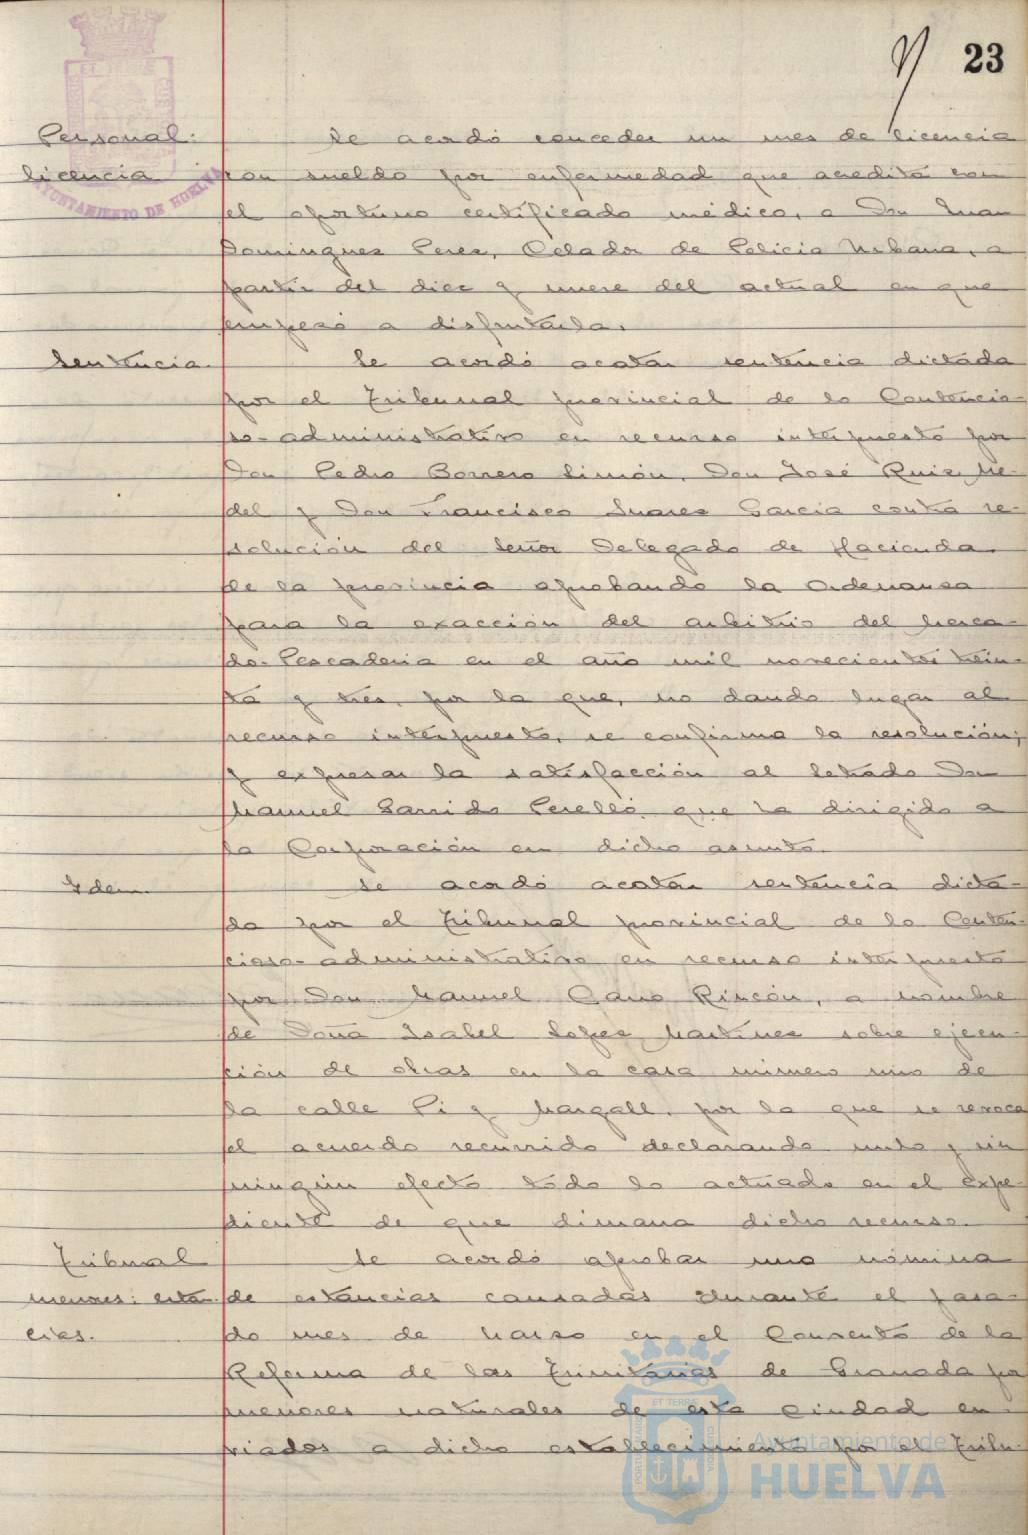 23
Personal: Se acordó conceder un mes de licencia
licencia con sueldo por enfermedad que acredita con
el oportuno certificado médico, a Don Juan
Dominguez Perez, Celador de Policia Urbana, a
partir del diez y nueve del actual en que
empezó a disfrutarla.
Sentencia. Se acordó acatar sentencia dictada
por el Tribunal provincial de lo Contencio-
so-administrativo en recurso interpuesto por
Don Pedro Borrero Limón, Don José Ruiz Ve-
del y Don Francisco Suarez Garcia contra re-
solución del Señor Delegado de Hacienda
de la provincia aprobando la Ordenanza
para la exacción del arbitrio del Merca-
do-Pescaderia en el año mil novecientos trein-
ta y tres, por la que, no dando lugar al
recurso interpuesto, se confirma la resolución;
y expresar la satisfacción al letrado Don
Manuel Garrido Perelló que ha dirigido a
la Corporación en dicho asunto.
Idem. Se acordó acatar sentencia dicta-
da por el Tribunal provincial de lo Conten-
cioso-administrativo en recurso interpuesto
por Don Manuel Cano Rincón, a nombre
de Doña Isabel Lopez Martinez sobre ejecu-
ción de obras en la casa número uno de
la calle Pi y Margall, por la que se revoca
el acuerdo recurrido declarando nulo y sin
ningún efecto todo lo actuado en el expe-
diente de que dimana dicho recurso.
Tribunal Se acordó aprobar una nómina
menores: estan- de estancias causadas durante el pasa-
cias. do mes de Marzo en el Convento de la
Reforma de las Trinitarias de Granada por
menores naturales de esta Ciudad en-
viados a dicho establecimiento por el Tribu-
AYUNTAMIENTO DE HUELVA
Ayuntamiento de
HUELVA